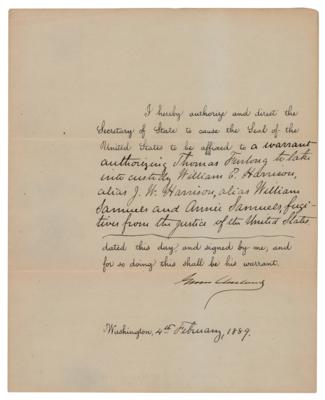 I hereby authorize and direct the
Secretary of State to cause the Seal of the
United States to be affixed to a warrant
authorizing Thomas Furlong to take
into custody William E. Harrison,
alias J. W. Harrison, alias William
Samuels and Annie Samuels, fugi-
tives from the justice of the United States
dated this day, and signed by me; and
for so doing this shall be his warrant.
Grover Cleveland
Washington, 4th February, 1889.